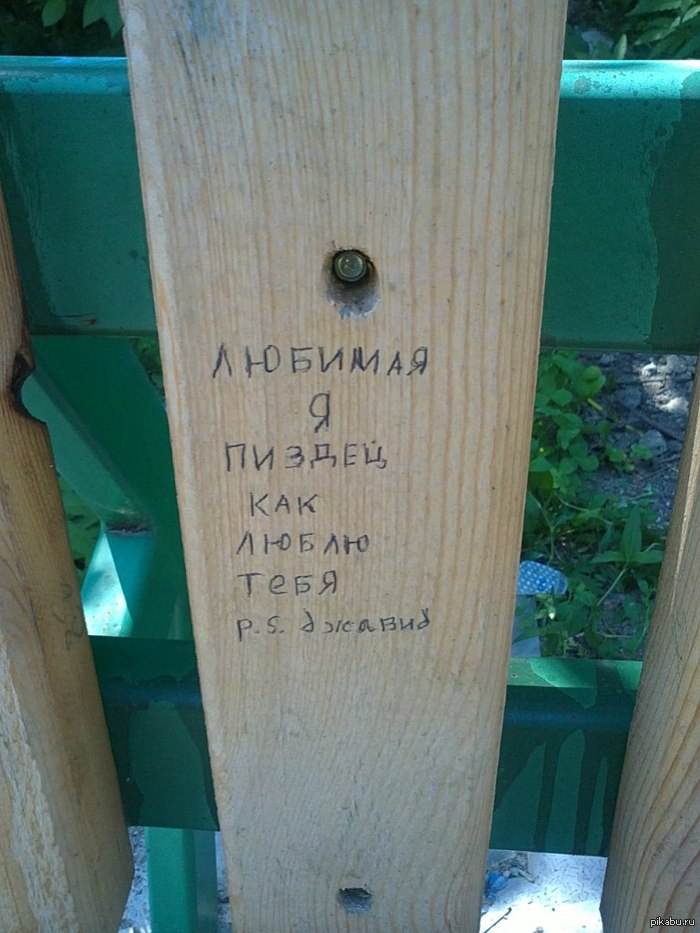 ЛЮБИМАЯ
Я
ПИЗДЕЦ
КАК
ЛЮБЛЮ
ТЕБЯ
P.S. джавид
pikabu.ru